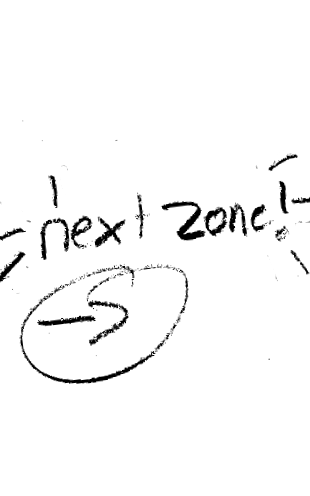 next zone!
→